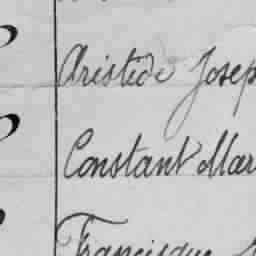 Aristide Josep
Constant Mar
Francisque